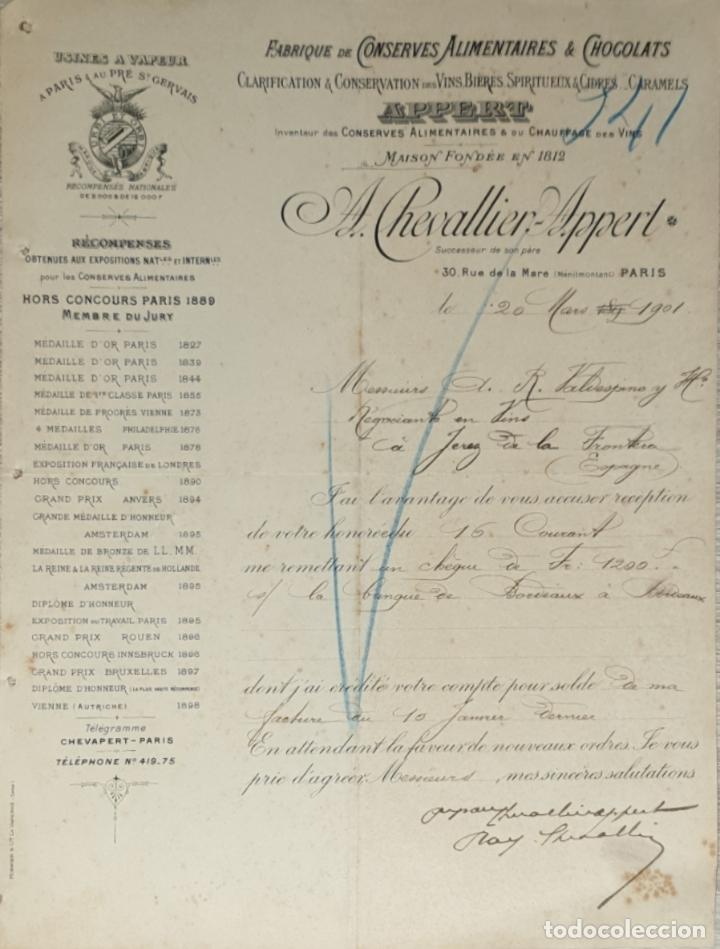 USINES A VAPEUR
A PARIS & AU PRÉ St GERVAIS
URBI ET ORBI
RÉCOMPENSES NATIONALES
DE 2000 & DE 12 000 F
RÉCOMPENSES
OBTENUES AUX EXPOSITIONS NATles ET INTERNles
pour les CONSERVES ALIMENTAIRES
HORS CONCOURS PARIS 1889
MEMBRE DU JURY
MÉDAILLE D'OR PARIS 1827
MÉDAILLE D'OR PARIS 1839
MÉDAILLE D'OR PARIS 1844
MÉDAILLE DE 1re CLASSE PARIS 1855
MÉDAILLE DE PROGRÈS VIENNE 1873
4 MÉDAILLES PHILADELPHIE 1876
MÉDAILLE D'OR PARIS 1878
EXPOSITION FRANÇAISE DE LONDRES
HORS CONCOURS 1890
GRAND PRIX ANVERS 1894
GRANDE MÉDAILLE D'HONNEUR
AMSTERDAM 1895
MÉDAILLE DE BRONZE DE LL. MM.
LA REINE & LA REINE RÉGENTE DE HOLLANDE
AMSTERDAM 1895
DIPLÔME D'HONNEUR
EXPOSITION DU TRAVAIL PARIS 1895
GRAND PRIX ROUEN 1896
HORS CONCOURS INNSBRUCK 1896
GRAND PRIX BRUXELLES 1897
DIPLÔME D'HONNEUR (LA PLUS HAUTE RÉCOMPENSE)
VIENNE (AUTRICHE) 1898
Télégramme
CHEVAPERT-PARIS
TÉLÉPHONE No 419.75
FABRIQUE DE CONSERVES ALIMENTAIRES & CHOCOLATS
CLARIFICATION & CONSERVATION DES VINS, BIÈRES, SPIRITUEUX & CIDRES _ CARAMELS
APPERT
Inventeur des CONSERVES ALIMENTAIRES & DU CHAUFFAGE DES VINS
MAISON FONDÉE EN 1812
A. Chevallier-Appert
Successeur de son père
30, Rue de la Mare (Ménilmontant) PARIS
le 20 Mars 1901
Messieurs A. R. Valdespino y Ho
Négociants en Vins
à Jerez de la Frontera
(Espagne)
J'ai l'avantage de vous accuser réception
de votre honorée du 16 Courant
me remettant un chèque de Fr: 1200.
s/ la banque de Bordeaux à Bordeaux
dont j'ai crédité votre compte pour solde de ma
facture du 10 Janvier dernier
En attendant la faveur de nouveaux ordres, Je vous
prie d'agréer, Messieurs, mes sincères salutations
Chevallier appert
todocoleccion